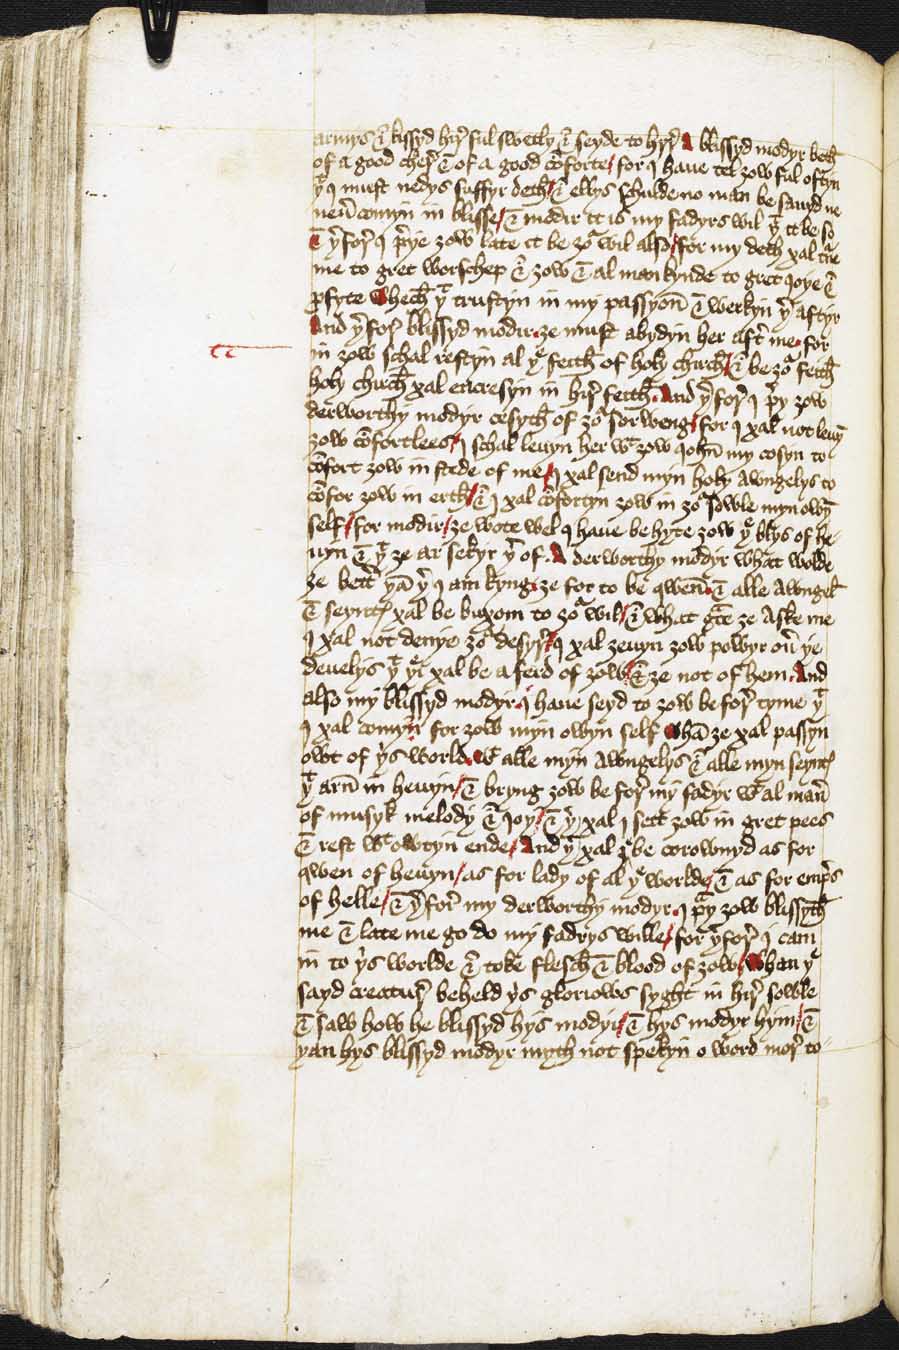 armys & kissyd hir ful swetly & seyde to hyr A blissyd modyr beth
of a good cher & of a good cōforte / for I haue tel ȝow ful oftyn
yͭ I must nedys suffyr deth / & ellys schulde no man be sauyd ne
neuͬ comyn in blisse / & modir it is my fadyrs wil yͭ it be so
& yͬfor I pͬye ȝow late it be ȝoͬ wil also / for my deth xal tͬne
me to gret worschep & ȝow & al man kynde to gret Joye &
pfyte whech yͭ trustyn in my passyon & werkyn yͬ aftyr
And yͬfor blissyd modir ȝe must abydyn her aftͬ me for
in ȝow schal restyn al yͤ feith of holy chirch / & be ȝoͬ feith
holy chirch xal encresyn in hir feith . And yͬfor I pͬy ȝow
derworthy modyr cesyth of ȝoͬ sorweng / for I xal not leuyn
ȝow cōfortles / I schal leuyn her wͭ ȝow Iohn my cosyn to
cōfort ȝow in stede of me / I xal send myn holy Awngelys to
cōfor ȝow in erth / & I xal cōfortyn ȝow in ȝoͬ sowle myn owyn
self / for modir / ȝe wote wel I haue behyte ȝow yͤ blys of he-
uyn & yͭ ȝe ar sekyr yͬ of . A derworthy modyr what wolde
ȝe bettͬ yā yͬ I am kyng ȝe for to be qwen & alle Awngel
& seynt xal be buxom to ȝoͬ wil / & what gͬce ȝe Aske me
I xal not denye ȝoͬ desyr / I xal ȝeuyn ȝow powyr ouͬ ye
deuelys yͭ yͤi xal be a ferd of ȝow & ȝe not of hem . And
also my blissyd modyr I haue seyd to ȝow be for tyme yͭ
I xal comyn for ȝow myn owyn self whā ȝe xal passyn
owt of yͥs world wͭ alle myn Awngelys & alle myn seynt
yͭ arn in heuyn / & bryng ȝow be for my fadyr wͭ al maner
of musyk melody & Joy / & yͬ xal I sett ȝow in gret pees
& rest wͭowtyn ende / And yͬ xal ȝe be corownyd as for
qwen of heuyn / as for lady of al yͤ worlde / & as for empͬs
of helle / & yͬfor my derworthy modyr I pͬy ȝow blissyth
me & late me go do my fadrys wille / for yͬfor I cam
in to yͥs worlde & toke flesch & blood of ȝow / whan yͤ
sayd creatur beheld yͥs gloriows syght in hir sowle
& saw how he blissyd hys modyr / & hys modyr hym / &
yan hys blissyd modyr myth not spekyn o word mor to-